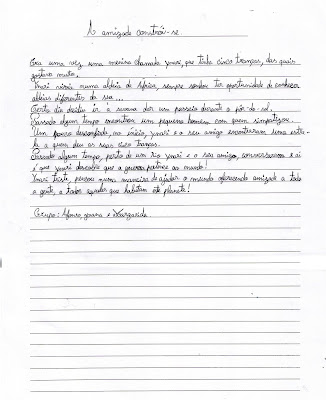 A amizade constrói-se
Era uma vez, uma menina chamada Ynari que tinha cinco tranças, das quais
gostava muito.
Ynari vivia numa aldeia de África, sempre sonhou ter oportunidade de conhecer
aldeias diferentes da sua...
Certo dia decidiu ir à savana dar um passeio durante o pôr-do-sol.
Passado algum tempo encontrou um pequeno homem com quem simpatizou.
Um pouco desconfiada, no início, ynari e o seu amigo encontraram uma
a quem deu as suas cinco tranças.
Passado algum tempo, perto de um rio ynari e o seu amigo, conversaram e aí
é que ynari descobre que a guerra pertence ao mundo!
Ynari triste, pensou numa maneira de ajudar o mundo oferecendo amizade a toda
a gente, a todos aqueles que habitam este planeta!
Grupo: Afonso, e Margarida